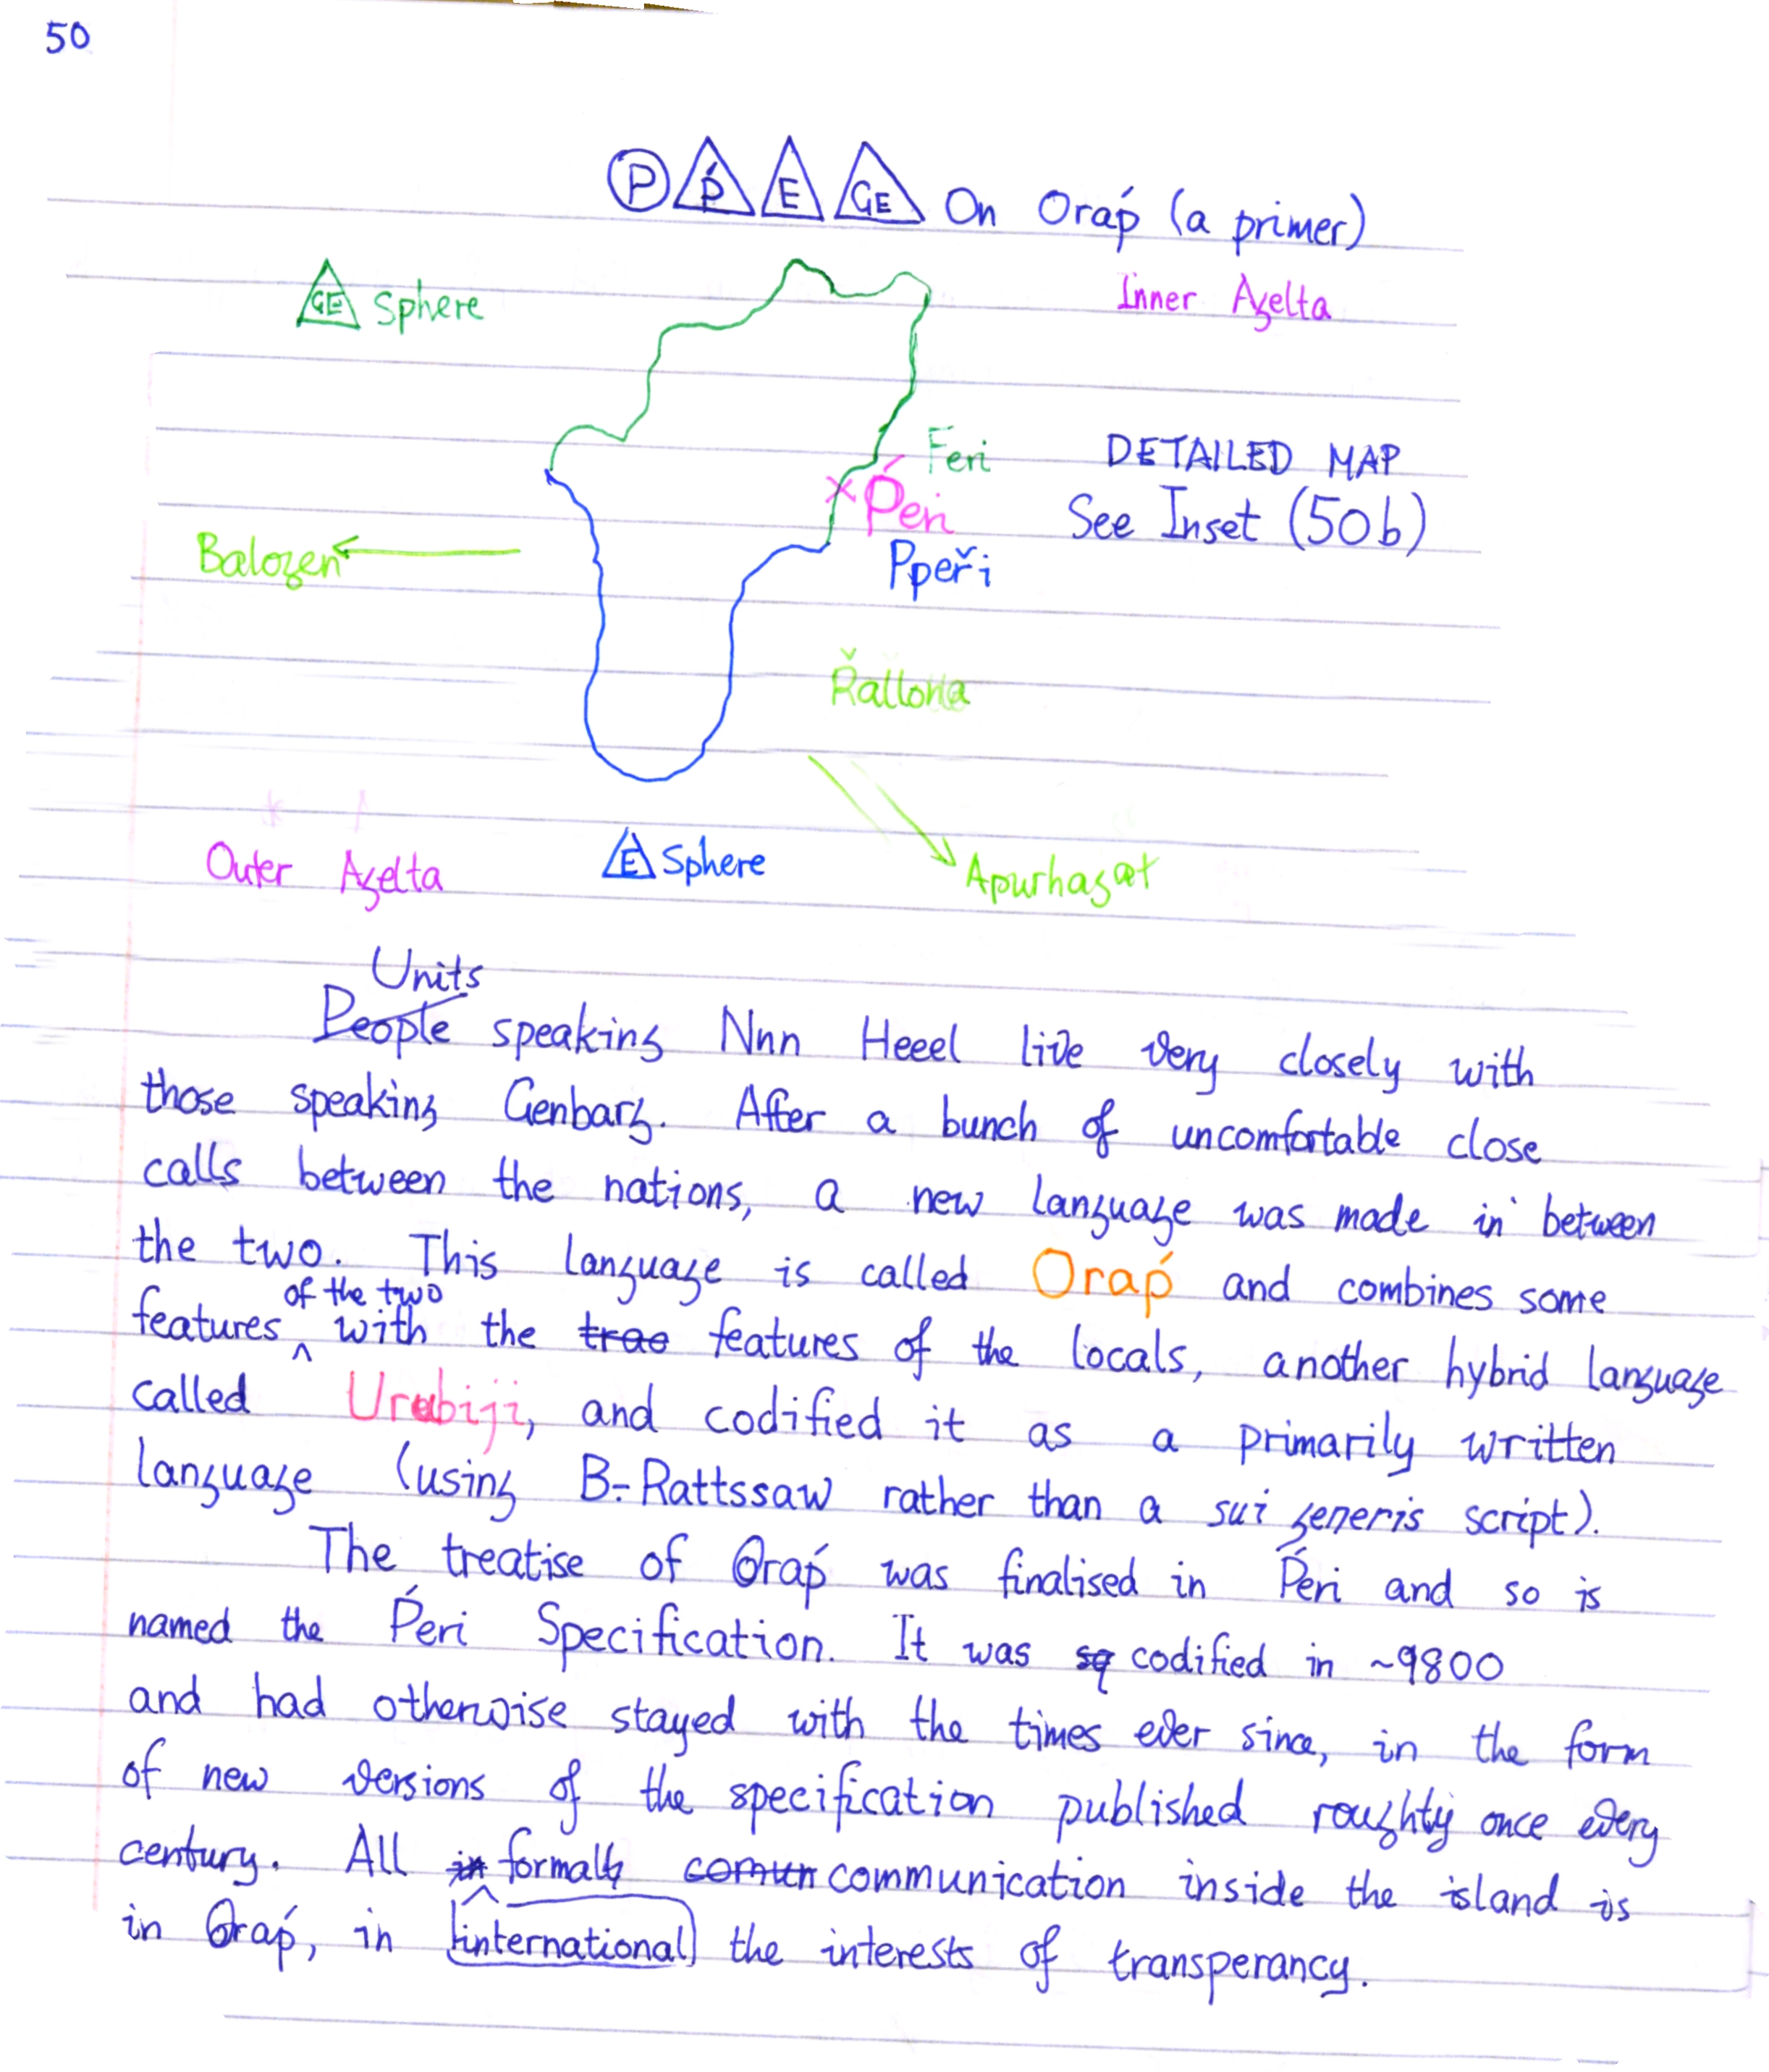 50
P Ṕ E GE On Oraṕ (a primer)
GE Sphere
Inner Azelta
Feri
DETAILED MAP
Ṕeri
See Inset (50b)
Balozen
Ppeři
Řallona
Outer Azelta
E Sphere
Apurhazat
Units
People speaking Nnn Heeel live very closely with
those speaking Genbarg. After a bunch of uncomfortable close
calls between the nations, a new language was made in between
the two. This language is called Oraṕ and combines some
of the two
features ^ with the trae features of the locals, another hybrid language
called Urubiji, and codified it as a primarily written
language (using B-Rattssaw rather than a sui generis script).
The treatise of Oraṕ was finalised in Ṕeri and so is
named the Ṕeri Specification. It was sq codified in ~9800
and had otherwise stayed with the times ever since, in the form
of new versions of the specification published roughty once every
century. All in formal comun communication inside the island is
in Oraṕ, in international the interests of transperancy.